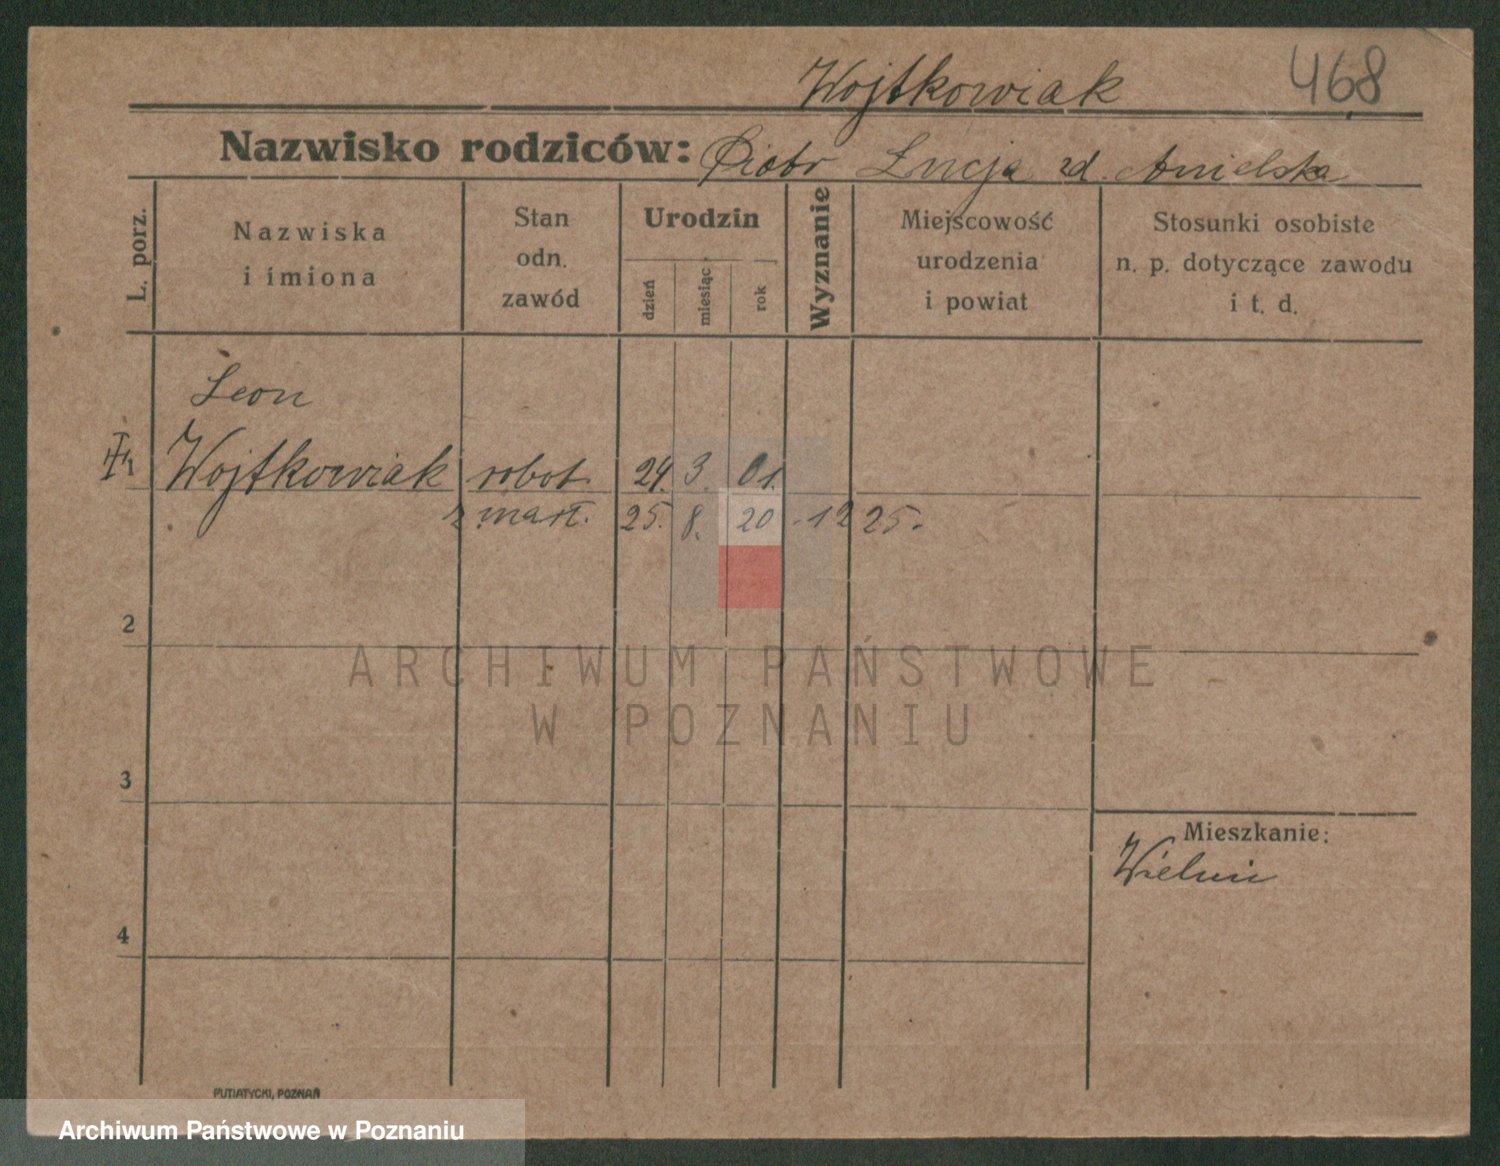 Wojtkowiak 468
Nazwisko rodziców: Piotr Łucja zd. Anielska
L. porz.
Nazwiska
i imiona
Stan
odn.
zawód
Urodzin
dzień
miesiąc
rok
Wyznanie
Miejscowość
urodzenia
i powiat
Stosunki osobiste
n. p. dotyczące zawodu
i t. d.
Leon
1 Wojtkowiak robot. 24. 3. 01.
zmarł. 25. 8. 20 - 12 25.
2
ARCHIWUM PAŃSTWOWE
W POZNANIU
3
Mieszkanie:
4
PUTIATYCKI, POZNAŃ
Archiwum Państwowe w Poznaniu